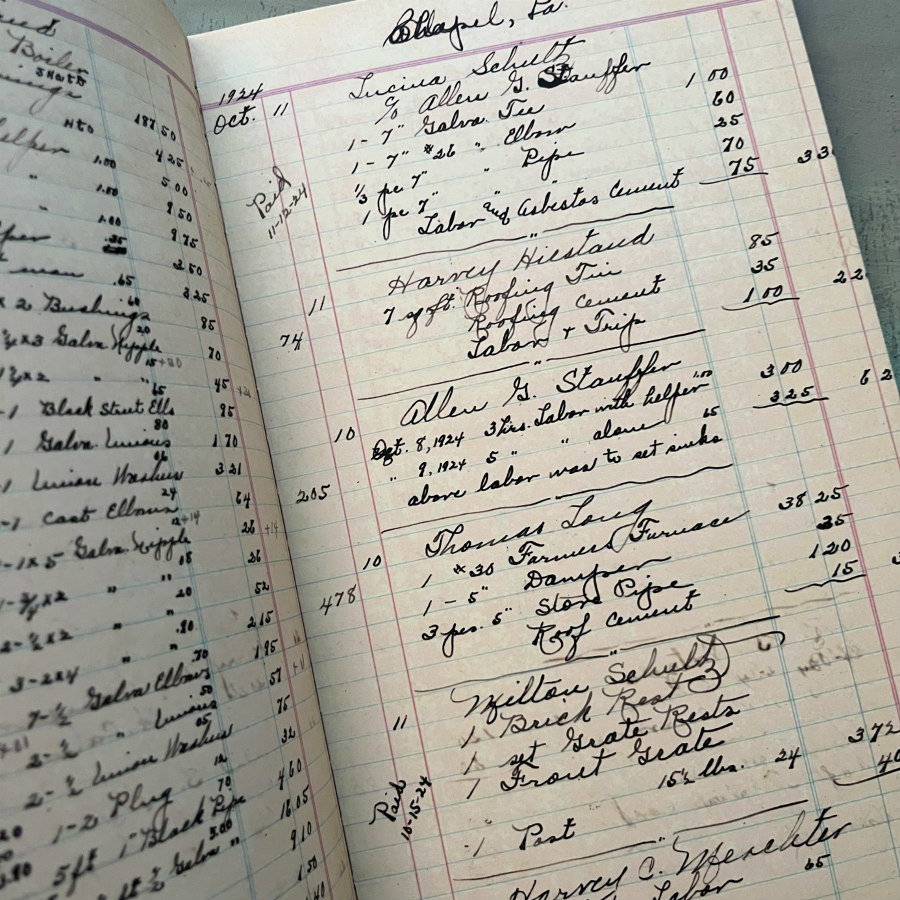 Boiler
187 50
Helper 1.00 4 25
" 1.00 5 00
" 1.00 9 50
9 75
man .65 2 50
x 2 Bushings 3 25
x 3 Galva Nipple 20 85
x 2 " " 70
1 Black Street Ells 65 45
1 Galva Unions 80 95
Union Washers 1 70
Cast Elbows 24 3 21
1 x 5 Galva Nipple 12+14 64
" " 08 26 +14
" " 20 26
3-2x4 " " .80 52
Galva Elbows .70 2 15
" Unions 50 1 95
Union Washers 05 57
1-2 Plug 12 75
5 ft 1" Black Pipe 70 32
Galva " 4 60
16 05
9 10
1 50
1 40
Chapel, Pa.
1924
Oct. 11 Lucina Schultz
c/o Allen G. Stauffer
1 - 7" Galva. Tee 1 00
1 - 7" #26 " Elbow 60
1/3 pc. 7" " Pipe 25
1 pc 7" " 70
Labor and Asbestos Cement 75 3 3
Paid
11-12-24
"
11 Harvey Hiestand
7 sq ft. Roofing Tin 85
Roofing Cement 35
74 Labor + Trip 1 00 2 2
"
10 Allen G. Stauffer
Oct. 8, 1924 3 hrs. Labor with helper 1.00 3 00
" 9, 1924 5 " " alone 65 3 25 6 2
205 above labor was to set sinks
"
10 Thomas Long
1 #30 Farmers Furnace 38 25
1 - 5" Damper 35
478 3 pcs. 5" Stove Pipe 1 20
Roof Cement 15
"
11 Milton Schultz
1 Brick Rest
1 set Grate Rests
1 Front Grate
15½ lbs. 24 3 72
Paid
10-15-24
1 Post 40
"
Harvey C. Mereckter
Labor 65